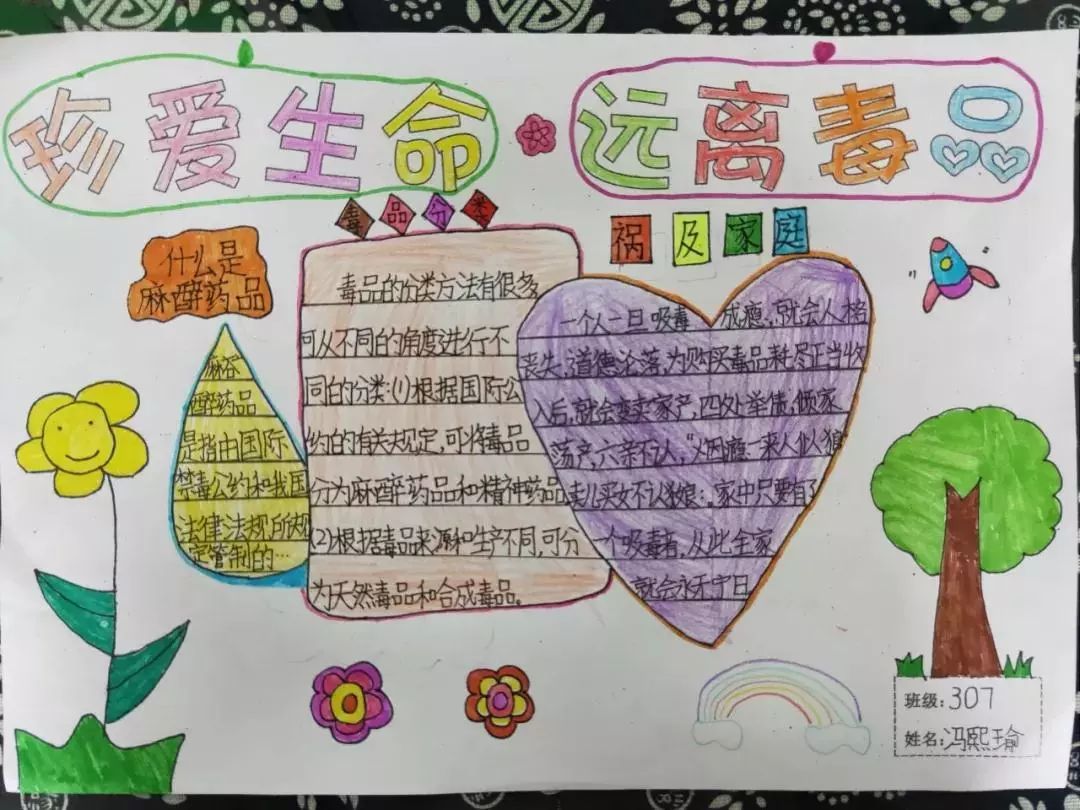 珍爱生命
远离毒品
什么是
麻醉药品
醉药品
是指由国际
禁毒公约和我国
法律法规所规
定管制的…
毒品分类
毒品的分类方法有很多
可从不同的角度进行不
同的分类:(1)根据国际公
约的有关规定,可将毒品
分为麻醉药品和精神药品
(2)根据毒品来源和生产不同,可分
为天然毒品和合成毒品。
祸及家庭
一个人一旦吸毒 成瘾,就会人格
丧失,道德沦落,为购买毒品耗尽正当收
入后,就会变卖家产,四处举债,倾家
荡产,六亲不认,"烟瘾一来人似狼
卖儿买女不认娘"。家中只要有了
一个吸毒者,从此全家
就会永无宁日
班级:307
姓名:冯熙瑜